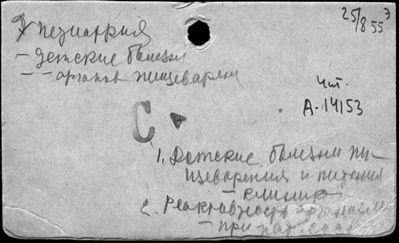 Педиатрия
25/8 55 э
- Детские болезни
-- органов пищеварен
Чит.
А-14153
С
1. Детские болезни пи-
щеварения и питания
- клиника
2. Реактивность организма
- при